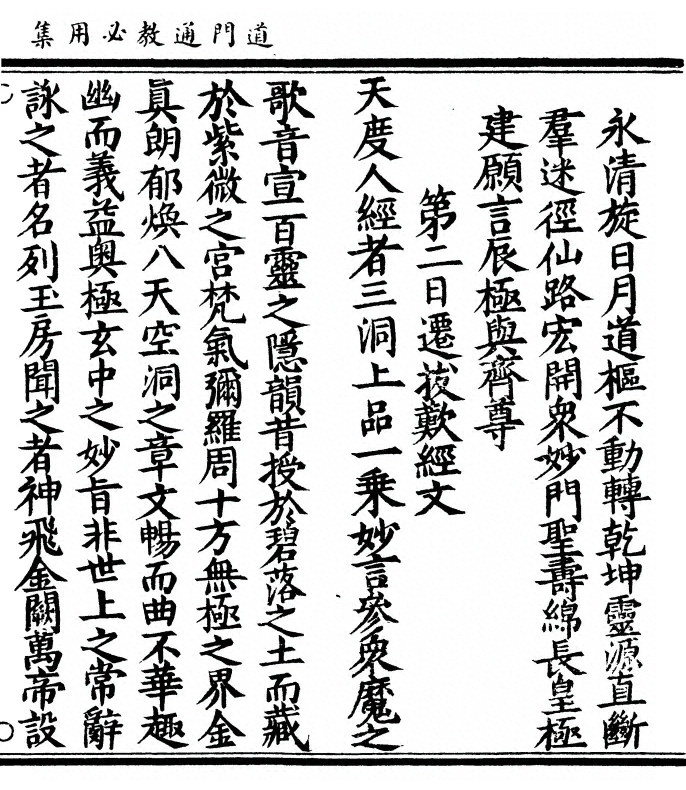 道門通教必用集
永清旋日月道樞不動轉乾坤靈源直斷
羣迷徑仙路宏開衆妙門聖壽綿長皇極
建願言辰極與齊尊
第二日遷拔歎經文
天度人經者三洞上品一乗妙言參衆魔之
歌音宣百靈之隱韻昔授於碧落之土而藏
於紫微之宮梵氣彌羅周十方無極之界金
眞朗郁煥八天空洞之章文暢而曲不華趣
幽而義益奥極玄中之妙旨非世上之常辭
詠之者名列玉房聞之者神飛金闕萬帝設